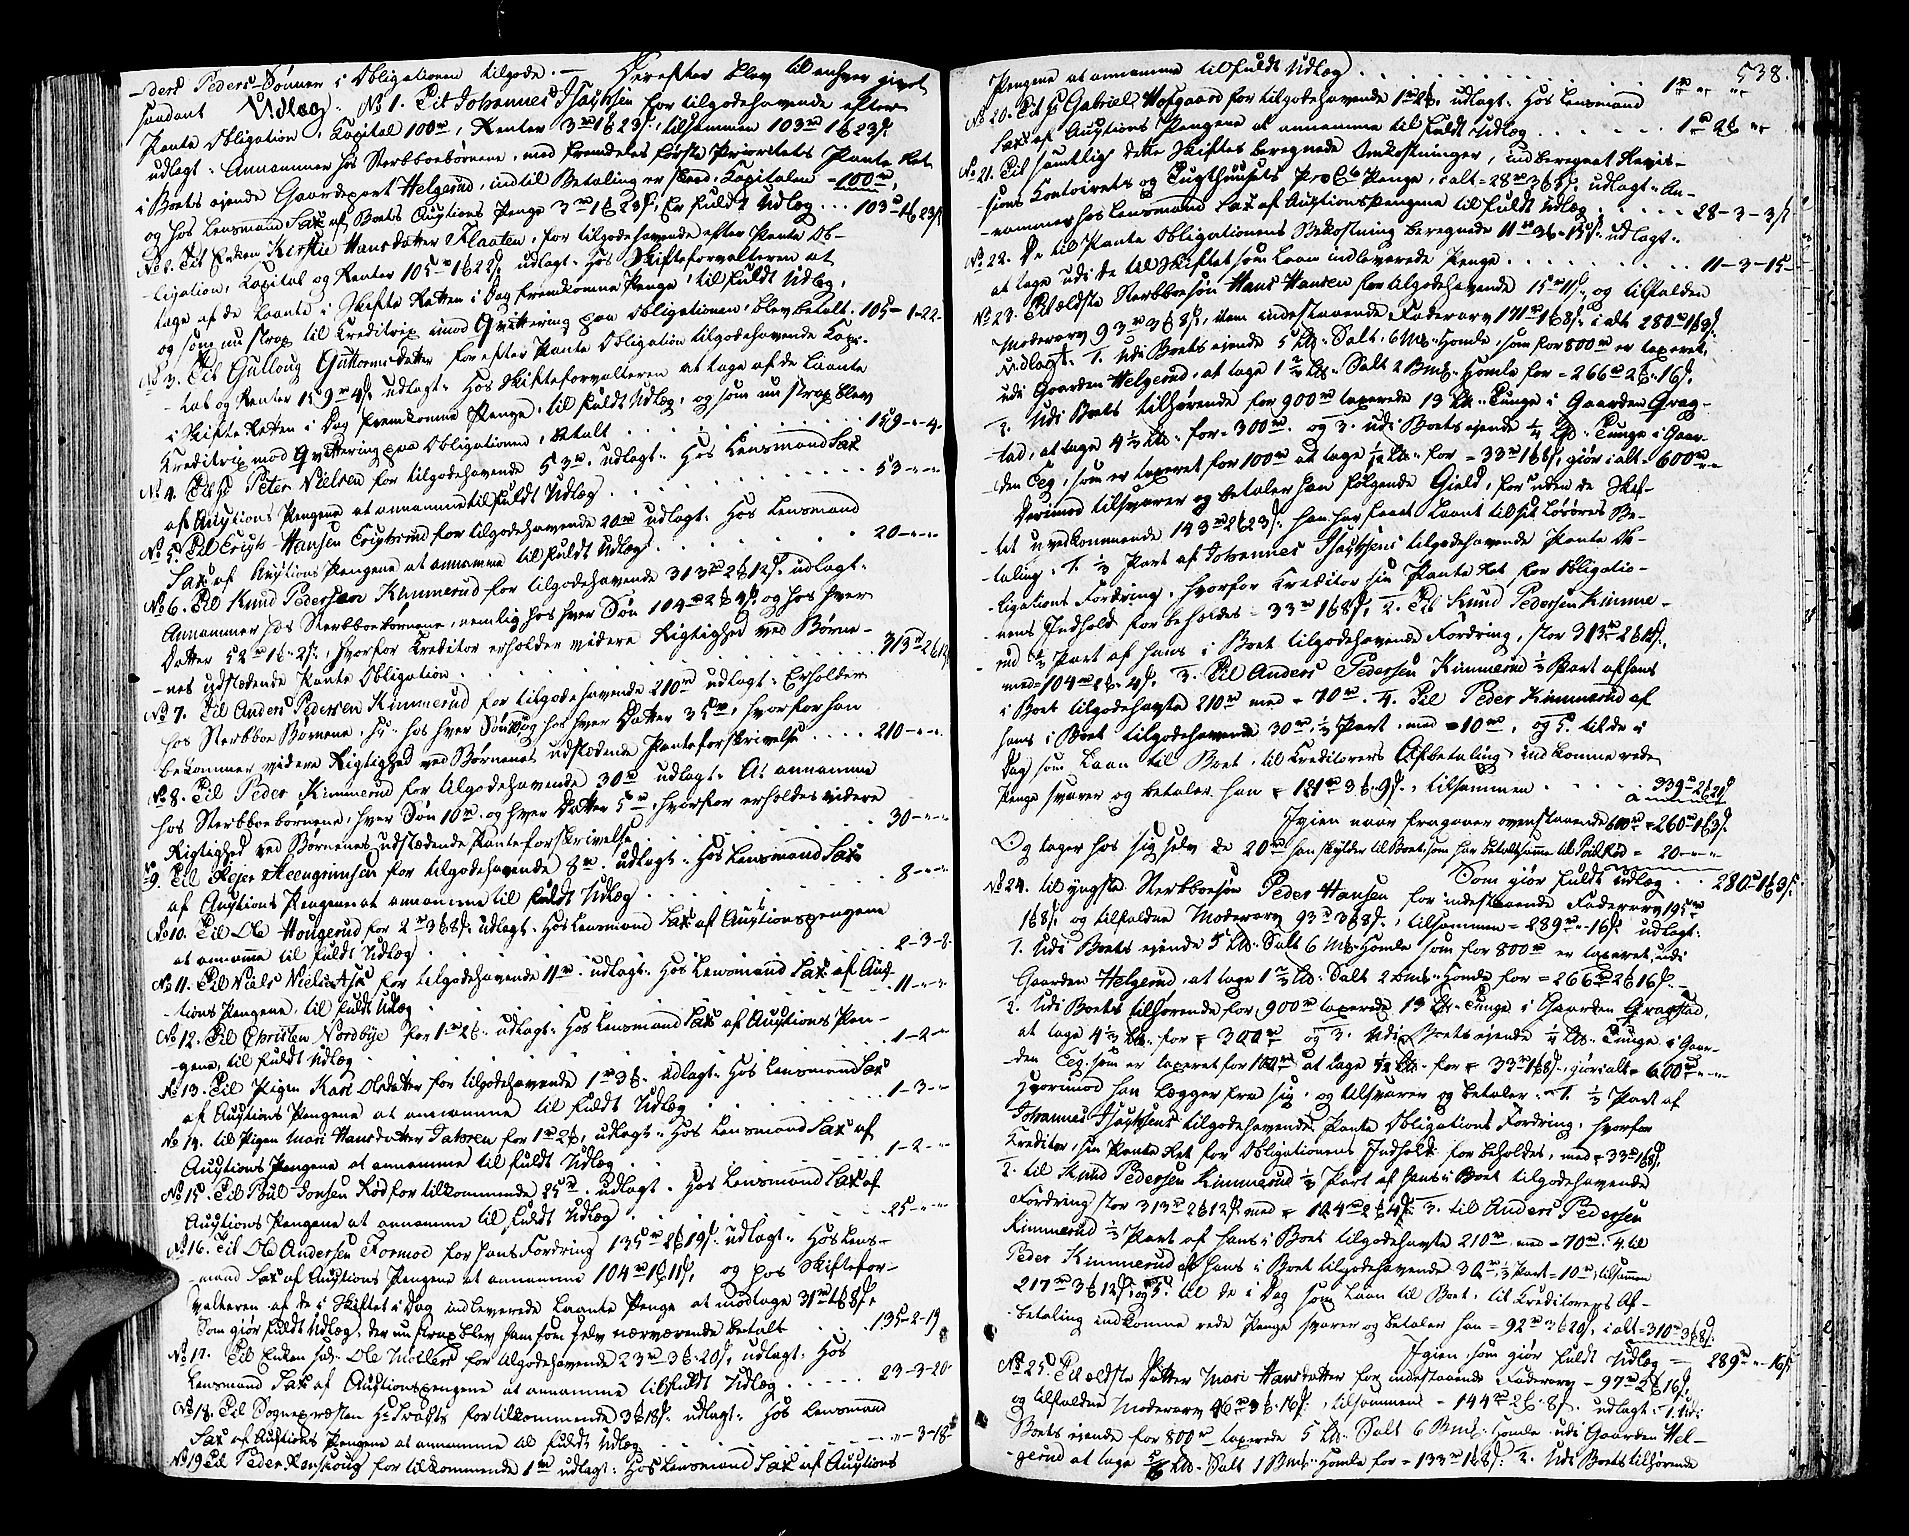 -ders Peders-Sønner i Obligationen tilgode. — Derefter blev til enhver givet
saadant Udlæg: No 1. Til Johannes Isachsen for tilgodehavende efter
Pante Obligation, Capital 100rd, Renter 3rd 1 ß 23 s., tilsammen 103rd 1 ß 23 s.
udlagt: Annammer hos Sterbboebørnene, med fremdeles første Prioritets Pante Ret
i Boets ejende Gaardepart Helgerud, indtil Betaling er skeed, Capitalen - 100rd,
og hos Lensmand Sax af Boets Auctions Penge 3rd 1 ß 23 s, Er fuldt Udlæg ... 103rd 1 ß 23 s
No 2. Til Enken Kirstie Hansdatter Flaaten, for tilgodehavende efter Pante Ob-
-ligation, Capital og Renter 105rd 1 ß 22 s, udlagt: Hos Skifteforvalteren at
tage af de laante i Skifte Retten i Dag fremkomne Penge, til fuldt Udlæg,
og som nu strax til Creditrix imod Qvittering paa Obligationen, blev betalt. 105 - 1 - 22 -
No 3. Til Gulloug Guttormsdatter for efter Pante Obligation tilgodehavende Capi-
-tal og Renter 159rd 4 s, udlagt: Hos Skifteforvalteren at tage af de laante
i Skifte Retten i Dag fremkomne Penge, til fuldt Udlæg, og som nu strax blev
Creditrix mod Qvittering paa Obligationen, betalt . . . . . 159 - „ - 4 -
No 4. Til Sr Peter Nielsen for tilgodehavende 53rd. udlagt: Hos Lensmand Sax
af Auctions Pengene at annamme til fuldt Udlæg . . . . . 53 - „ - „
No 5. Til Erich Hansen Erichsrud for tilgodehavende 20rd udlagt: Hos Lensmand
Sax af Auctions Pengene at annamme til fuldt Udlæg . . . . 20 - „ - „
No 6. Til Knud Pedersen Kimmerud for tilgodehavende 313rd 2 ß 12 s. udlagt:
Annammer hos Sterbboebørnene, nemlig hos hver Søn 104rd 2 ß 4 s, og hos hver
Datter 52rd 1 ß 2 s, hvorfor Creditor erholder videre Rigtighed ved Børne-
-nes udstædende Pante Obligation . . . . . 313rd 2 ß 12
No 7. Til Anders Pedersen Kimmerud for tilgodehavende 210rd udlagt: Erholder
hos Sterbboe Børnene, hos hver Søn og hos hver Datter 35rd, hvorfor han
bekommer videre Rigtighed ved Børnenes udstædende Panteforskrivelse .... 210 - „ - „
No 8. Til Peder Kimmerud for tilgodehavende 30rd udlagt: At annamme
hos Sterbboebørnene, hver Søn 10rd. og hver Datter 5rd, hvorfor erholdes videre
Rigtighed ved Børnenes udstædende Panteforskrivelse . . . 30 - „ - „
No 9. Til Steengrimsen for tilgodehavende 8rd. udlagt: Hos Lensmand Sax
af Auctions Pengene at annamme til fuldt Udlæg . . . . . 8 - „ - „
No 10. Til Ole Hougerud for 2rd 3 ß 8 s. udlagt: Hos Lensmand Sax af Auctionspengene
at annamme til fuldt Udlæg . . . . . 2 - 3 - 8
No 11. Til Niels Nielsen for tilgodehavende 11rd. udlagt: Hos Lensmand Sax af Auc-
-tions Pengene, til fuldt Udlæg . . . . . 11 - „ - „
No 12. Til Christen Nordbye for 1rd 2 ß. udlagt: Hos Lensmand Sax af Auctions Pen-
-gene, til fuldt Udlæg . . . . . 1 - 2 - „
No 13. Til Pigen Kari Olsdatter for tilgodehavende 1rd 3 ß. Udlagt: Hos Lensmand Sax
af Auctions Pengene at annamme til fuldt Udlæg . . . . 1 - 3 - „
No 14. til Pigen Mari Hansdatter for 1rd 2 ß, udlagt: Hos Lensmand Sax af
Auctions Pengene at annamme til fuldt Udlæg . . . . 1 - 2 - „
No 15. Til Poul Jonsen Rød for tilkommende 25rd. udlagt: Hos Lensmand Sax af
Auctions Pengene at annamme til fuldt Udlæg . . . . 25 - „ - „
No 16. Til Ole Andersen Formoe for hans Fordring 135rd 2 ß 19 s. udlagt: Hos Lens-
-mand Sax af Auctions Pengene at annamme 104rd 1 ß 11 s, og hos Skiftefor-
valteren af de i Skiftet i Dag indleverede laante Penge at modtage 31rd 1 ß 8 s,
Som giør fuldt Udlæg, der nu strax blev ham som selv nærværende betalt . . 135 - 2 - 19
No 17. Til Enken Sal. Ole Møllers for tilgodehavende 23rd 3 ß 20 s, udlagt: Hos
Lensmand Sax af Auctionspengene at annamme til fuldt Udlæg . . . . . 23 - 3 - 20
No 18. Til Sognepræsten Hr for tilkommende 3 ß 18 s. udlagt: Hos Lensmand
Sax af Auctions Pengene at annamme til fuldt Udlæg . . . . . „ - 3 - 18
No 19 Til Peder for tilkommende 1rd udlagt: Hos Lensmand Sax af Auctions
538.
Pengene at annamme til fuldt Udlæg . . . . . 1rd „ „
No 20. Til Sr Gabriel Hofgaard for tilgodehavende 1rd 2 ß. udlagt: Hos Lensmand
Sax af Auctions Pengene at annamme til fuldt Udlæg . . . . . 1rd 2 ß „
No 21. Til samtlig dette Skiftes beregnede Omkostninger, indberegnet Revis-
-sions Contoirets og Tugthusets Penge, i alt = 28rd 3 ß 3 s. udlagt: An-
-nammer hos Lensmand Sax af Auctions Pengene til fuldt Udlæg . . . . . 28 - 3 - 3 s
No 22. De til Pante Obligationens Bekostning beregnede 11rd 3 ß 15 s. udlagt:
at tage udi de til Skiftet som Laan indleverede Penge . . . . . 11 - 3 - 15 -
No 23. Til ældste Sterbboesøn Hans Hansen for tilgodehavende 15rd 11 s, og tilfalden
Moderarv 93rd 3 ß 8 s, item indestaaende Faderarv 171rd 1 ß 8 s. i alt 280rd 1 ß 3 s.
Udlagt: 1. Udi Boets ejende 5 Lb. Salt 6 Mk. Homle, som for 800rd er taxeret,
udi Gaarden Helgerud, at tage 1 2/3 Lb. Salt 2 Bmk. Homle for = 266rd 2 ß 16 s.
2. Udi Boets tilhørende for 900rd taxerede 13 Lb. Tunge i Gaarden Grag-
-tad, at tage 4 1/3 Lb. for = 300rd. og 3. udi Boets ejende 1/4 Lb. Tunge i Gaar-
-den Eeg, som er taxeret for 100rd at tage 1/12 Lb. for = 33rd 1 ß 8 s, giør i alt = 600rd „ „
Derimod tilsvarer og betaler han følgende Gield, foruden de Skif-
-tet uvedkommende 143rd 2 ß 23 s. han har faaet Laant til sit Løsøres Be-
-taling: 1. 1/3 Part af Johannes Isachsens tilgodehavende Pante Ob-
-ligations Fordring, hvorfor Creditor sin Pante Ret for Obligatio-
-nens Indhold forbeholdes = 33rd 1 ß 8 s, 2. Til Knud Pedersen Kimme-
-rud 1/3 Part af hans i Boet tilgodehavende Fordring, stor 313rd 2 ß 12 s.
med = 104rd 2 ß 4 s. 3. Til Anders Pedersen Kimmerud 1/3 Part af hans
i Boet tilgodehavte 210rd med = 70rd. 4. Til Peder Kimmerud af
hans i Boet tilgodehavende 30rd, 1/3 Part med = 10rd, og 5. til de i
Dag som Laan til Boet, til Creditorers Afbetaling indkomne rede
Penge svarer og betaler han = 121rd 3 ß 9 s, tilsammen . . . . 339rd 2 ß 21 s
Igien naar fragaaer ovenstaaende 600rd = 260rd 1 ß 3 s.
Og tager hos sig selv de 20rd han skylder til Boet, som har betalt samme til Poul Rød = 20 - „ - „
Som giør fuldt Udlæg . . 280rd 1 ß 3 s.
No 24. til yngste Sterbboesøn Peder Hansen for indestaaende Faderarv 195rd
1 ß 8 s, og tilfalden Moderarv 93rd 3 ß 8 s, tilsammen = 289rd „ 16 s. udlagt:
1. Udi Boets ejende 5 Lb. Salt 6 Mk. Homle som for 800rd er taxeret, udi
Gaarden Helgerud, at tage 1 2/3 Lb. Salt 2 Bmk. Homle for = 266rd 2 ß 16 s. -
2. Udi Boets tilhørende for 900rd taxerede 13 Lb. Tunge i Gaarden Gragstad,
at tage 4 1/3 Lb. for = 300rd og 3. Udi Boets ejende 1/4 Lb. Tunge i Gaar-
-den Eeg, som er taxeret for 100rd at tage 1/12 Lb. for = 33rd 1 ß 8 s, giør i alt = 600rd - „ - „
Hvorimod han lægger fra sig, og tilsvarer og betaler: 1. 1/3 Part af
Johannes Isachsens tilgodehavende Pante Obligations Fordring, hvorfor
Creditor sin Pante Ret for Obligationens Indhold forbeholdes, med = 33rd 1 ß 8 s,
2. til Knud Pedersen Kimmerud 1/3 Part af hans i Boet tilgodehavende
Fordring stor 313rd 2 ß 12 s. med = 104rd 2 ß 4 s, 3. til Anders Pedersen
Kimmerud 1/3 Part af hans i Boet tilgodehavte 210rd. med = 70rd. 4. til
Peder Kimmerud af hans i Boet tilgodehavende 30rd, 1/3 Part = 10rd, tilsammen
217rd 3 ß 12 s, og 5. til de i Dag som Laan til Boet, til Creditorers Af-
-betaling indkomne rede Penge svarer og betaler han = 92rd 3 ß 20 s, i alt = 310rd 3 ß 8 s.
Igien, som giør fuldt Udlæg — 289rd „ 16 s
No 25. Til ældste Datter Mari Hansdatter for indestaaende Faderarv = 97rd 2 ß 16 s,
og tilfalden Moderarv 46rd 3 ß 16 s, tilsammen = 144rd 2 ß 8 s. udlagt: 1. Udi
Boets ejende for 800rd taxerede 5 Lb. Salt 6 Bmk. Homle udi Gaarden Hel-
-gerud at tage 5/6 Lb. Salt 1 Bmk. Homle for = 133rd 1 ß 8 s. 2. Udi Boets tilhørende